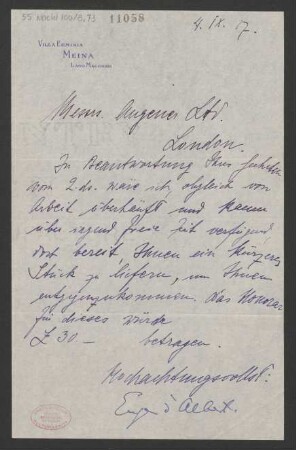 55 Nachl 100/B,71
11058
4. IX. 17.
VILLA EUGENIA
MEINA
LAGO MAGGIORE
Messrs. Augener Ltd.
London.
In Beantwortung Ihres Geehrten
vom 2. ds. wäre ich, obgleich von
Arbeit überhäuft und kaum
über irgend freie Zeit verfügend
doch bereit, Ihnen ein kürzeres
Stück zu liefern, um Ihnen
entgegenzukommen. Das Honorar
für dieses würde
£ 30 – betragen.
Hochachtungsvollst:
Eugen d'Albert.